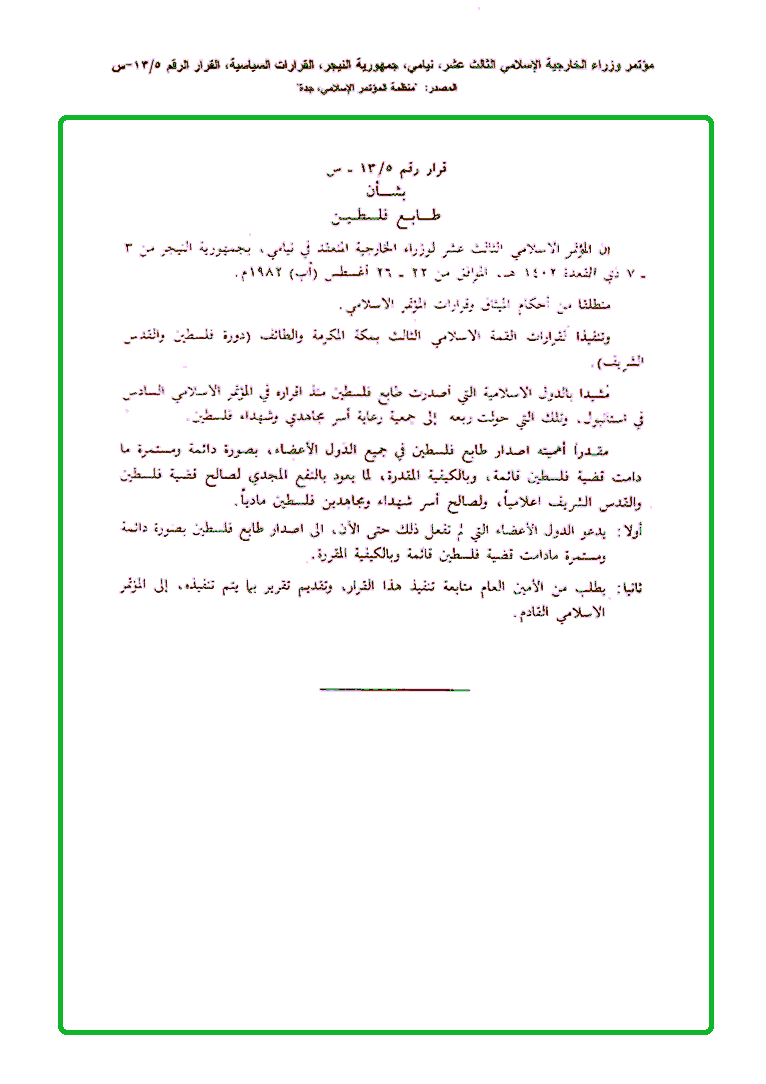 مؤتمر وزراء الخارجية الإسلامي الثالث عشر، نيامي، جمهورية النيجر، القرارات السياسية، القرار الرقم ١٣/٥-س
المصدر: "منظمة المؤتمر الإسلامي، جدة"
قرار رقم ١٣/٥ ـ س
بشــأن
طــابع فلسطــين
ان المؤتمر الاسلامي الثالث عشر لوزراء الخارجية المنعقد في نيامي، بجمهورية النيجر من ٣
ـ ٧ ذي القعدة ١٤٠٢ هـ. الموافق من ٢٢ ـ ٢٦ أغسطس (آب) ١٩٨٢م.
منطلقا من أحكام الميثاق وقرارات المؤتمر الاسلامي.
وتنفيذا لقرارات القمة الاسلامي الثالث بمكة المكرمة والطائف (دورة فلسطين والقدس
الشريف).
مشيدا بالدول الاسلامية التي أصدرت طابع فلسطين منذ اقراره في المؤتمر الاسلامي السادس
في استانبول. وتلك التي حولت ريعه إلى جمعية رعاية أسر مجاهدي وشهداء فلسطين.
مقدرا أهميته اصدار طابع فلسطين في جميع الدول الأعضاء، بصورة دائمة ومستمرة ما
دامت قضية فلسطين قائمة، وبالكيفية المقدرة، لما يعود بالنفع المجدي لصالح قضية فلسطين
والقدس الشريف اعلامياً، ولصالح أسر شهداء ومجاهدين فلسطين مادياً.
أولا: يدعو الدول الأعضاء التي لم تفعل ذلك حتى الآن، الى اصدار طابع فلسطين بصورة دائمة
ومستمرة مادامت قضية فلسطين قائمة وبالكيفية المقررة.
ثانيا: يطلب من الأمين العام متابعة تنفيذ هذا القرار، وتقديم تقرير بها يتم تنفيذه، إلى المؤتمر
الاسلامي القادم.